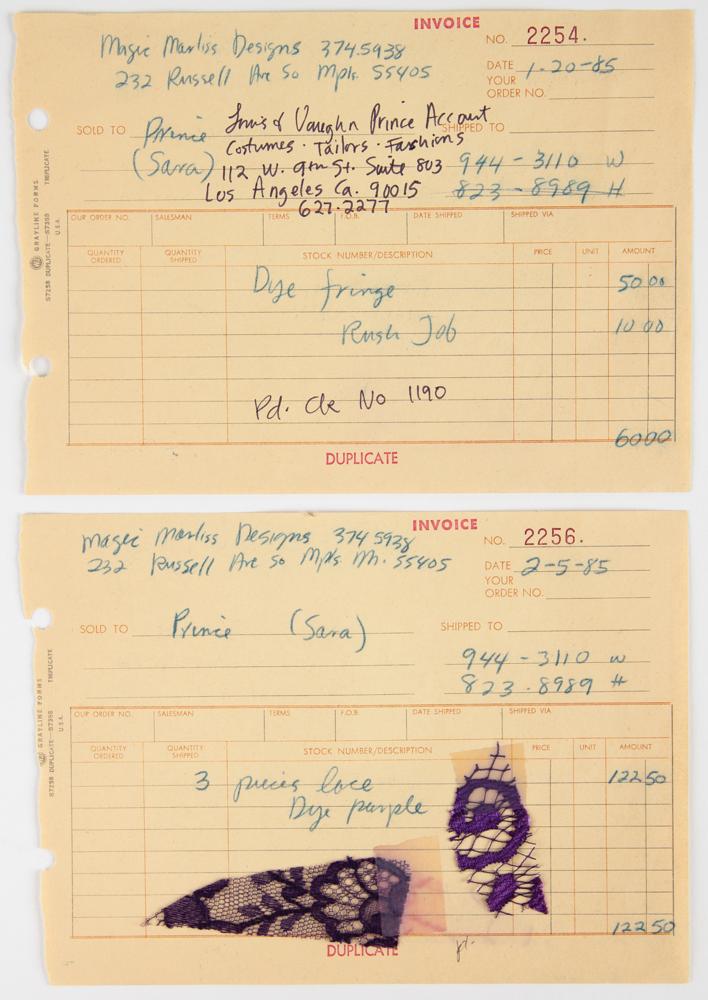 INVOICE
Magic Marliss Designs 374.5938
232 Russell Ave So Mpls. 55405
NO. 2254.
DATE 1-20-85
YOUR
ORDER NO.
SOLD TO Prince
(Sara)
Louis & Vaughn Prince Account
Costumes · Tailors · Fashions
112 W. 9th St. Suite 803
Los Angeles Ca. 90015
627.2277
SHIPPED TO
944-3110 W
823-8989 H
OUR ORDER NO. SALESMAN TERMS F.O.B. DATE SHIPPED SHIPPED VIA
QUANTITY ORDERED QUANTITY SHIPPED STOCK NUMBER/DESCRIPTION PRICE UNIT AMOUNT
Dye fringe 50 00
Rush Job 10 00
Pd. Ck No 1190
6000
DUPLICATE
GRAYLINE FORMS
S7258 DUPLICATE—S7358 TRIPLICATE
U.S.A.
INVOICE
Magic Marliss Designs 374 5938
232 Russell Ave So Mpls Mn. 55405
NO. 2256.
DATE 2-5-85
YOUR
ORDER NO.
SOLD TO Prince (Sara)
SHIPPED TO
944-3110 W
823.8989 H
OUR ORDER NO. SALESMAN TERMS F.O.B. DATE SHIPPED SHIPPED VIA
QUANTITY ORDERED QUANTITY SHIPPED STOCK NUMBER/DESCRIPTION PRICE UNIT AMOUNT
3 pieces lace 122 50
Dye purple
122 50
DUPLICATE
GRAYLINE FORMS
S7258 DUPLICATE—S7358 TRIPLICATE
U.S.A.